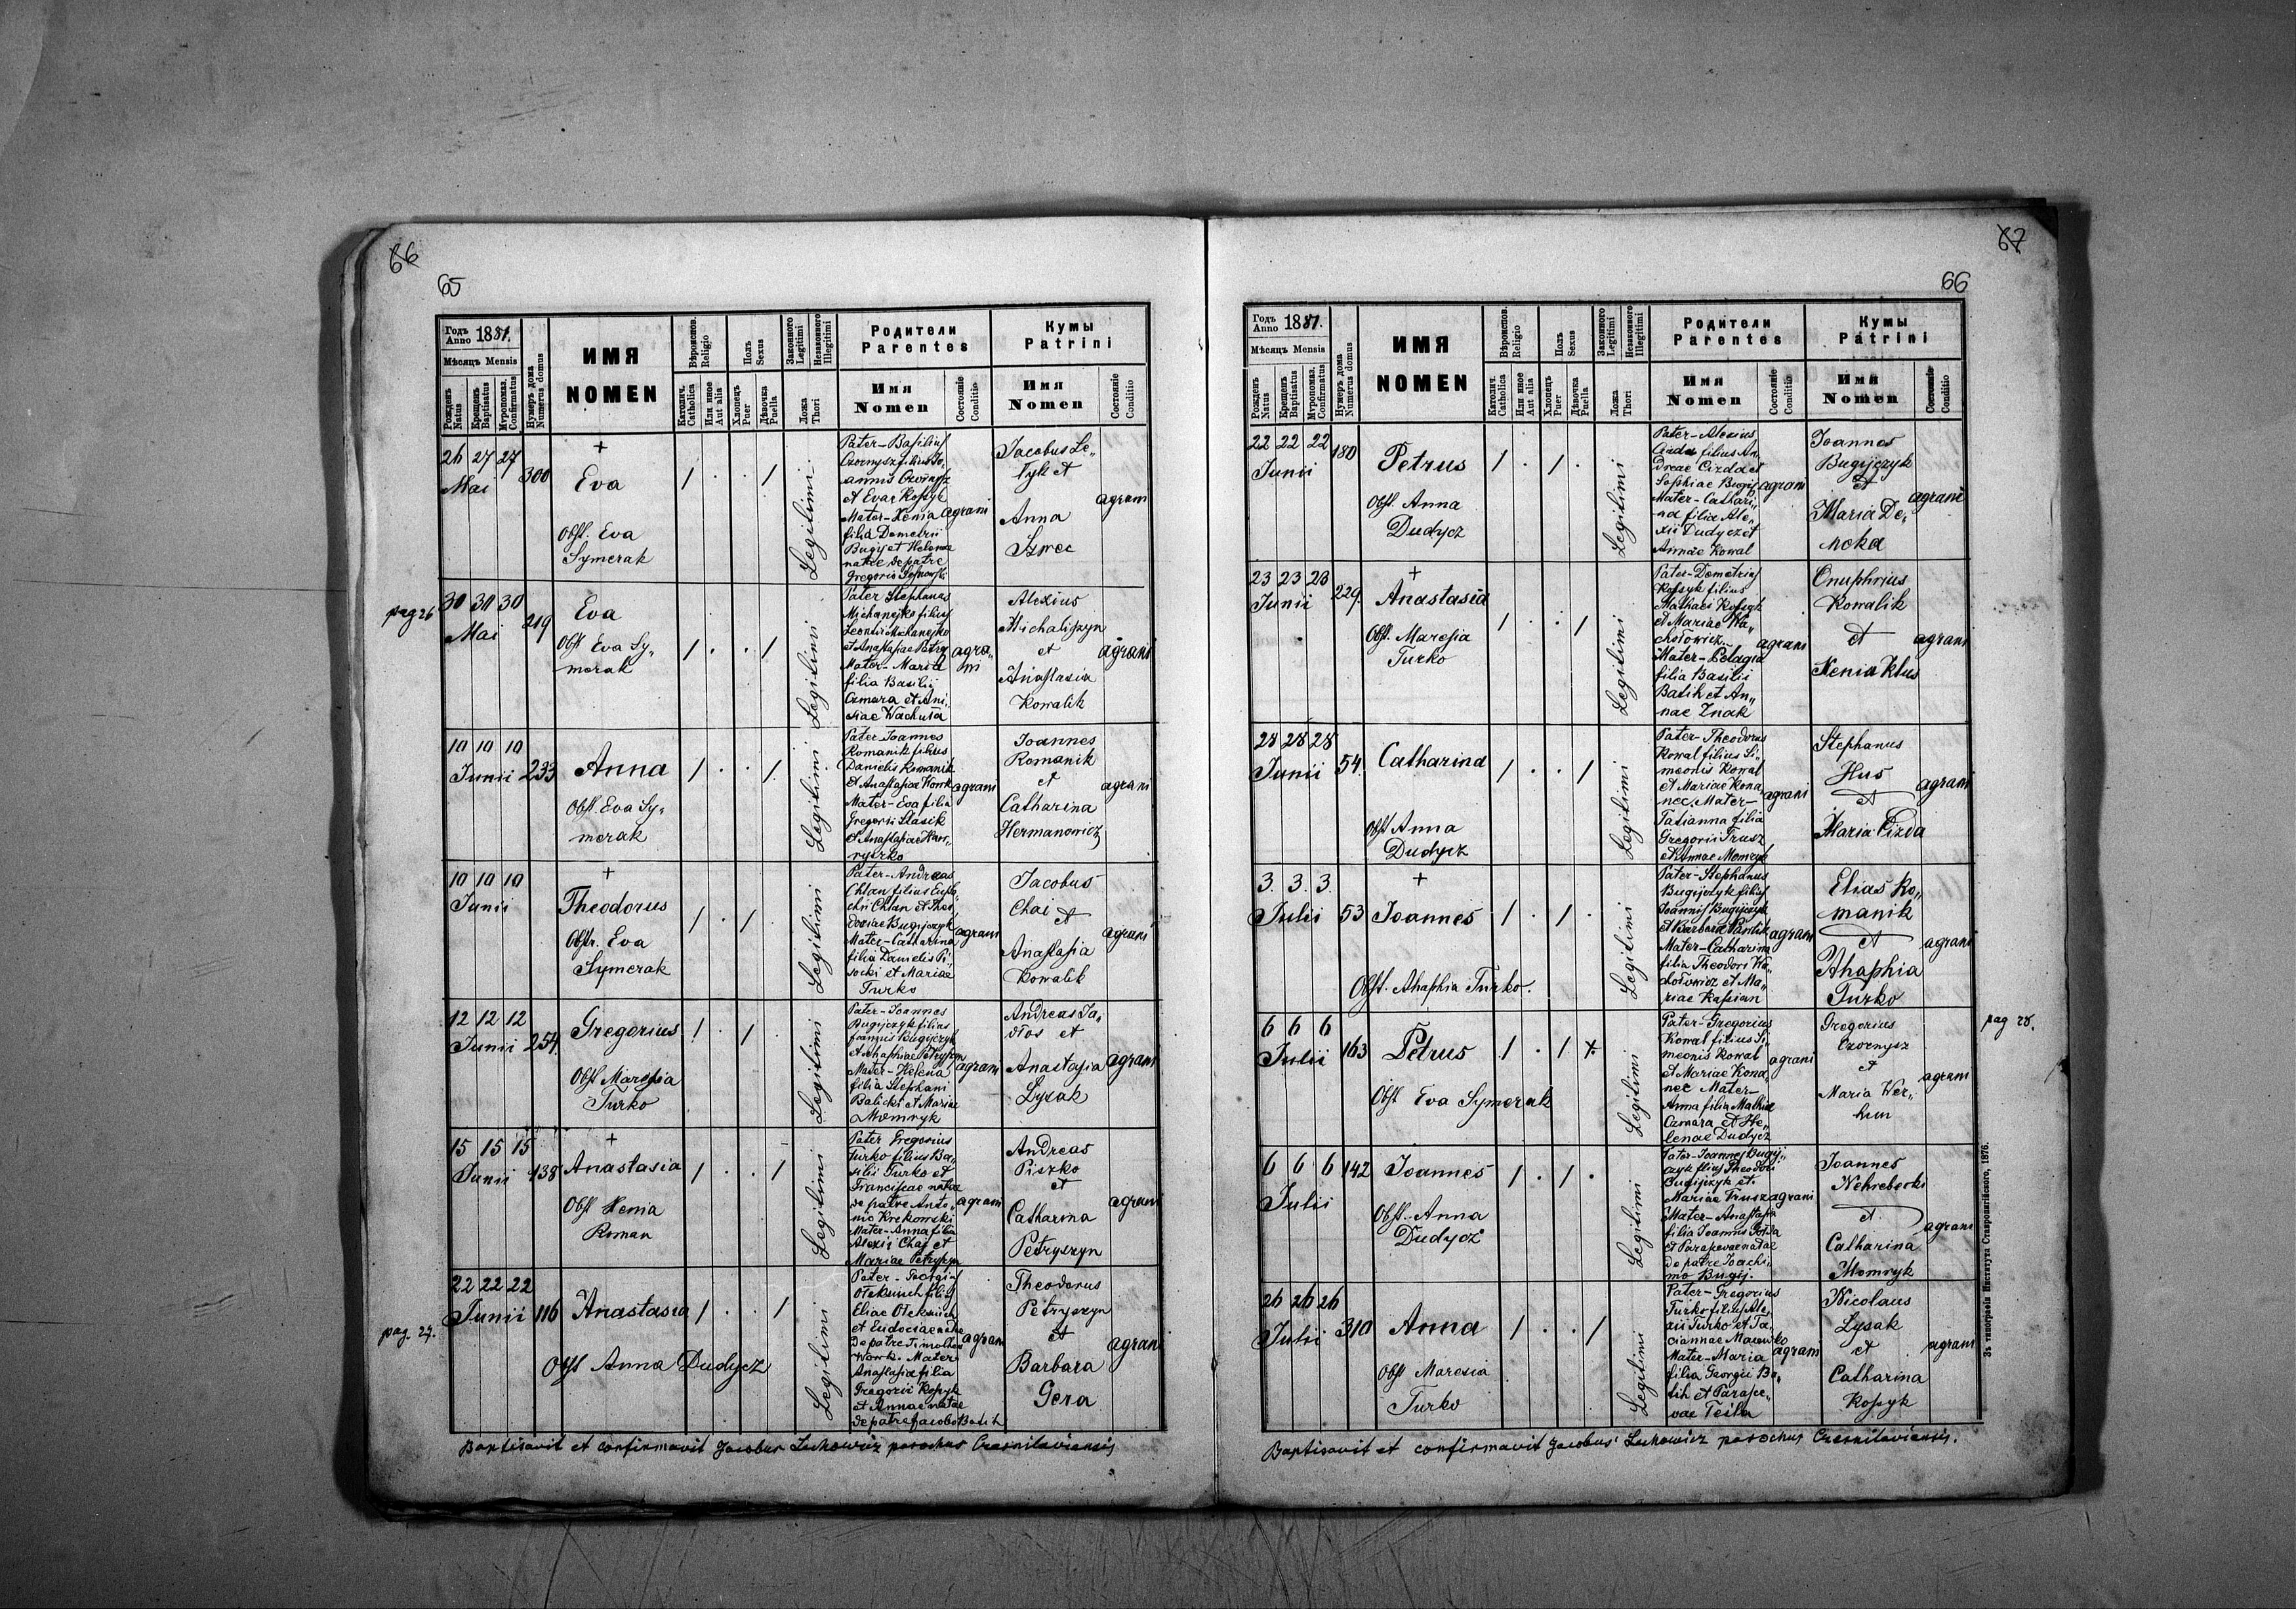 66
65
Годъ Anno 1881.
Мѣсяцъ Mensis
Рожденъ Natus
Крещенъ Baptisatus
Мѵропомаз. Confirmatus
Нумеръ дома Numerus domus
ИМЯ
NOMEN
Вѣроиспов. Religio
Католич. Catholica
Или иное Aut alia
Полъ Sexus
Хлопецъ Puer
Дѣвочка Puella
Законного Legitimi
Незаконного Illegitimi
Ложа Thori
Родители
Parentes
Имя
Nomen
Состояніе Conditio
Кумы
Patrini
Имя
Nomen
Состояніе Conditio
26 27 27
Mai
300
+
Eva
Obst. Eva
Symerak
/ . . /
Legitimi
Pater-Basilius
Czornysz filius Jo„
annis Czornysz
et Evae Kopyk
Mater-Xenia
filia Demetrii
Bugij et Helenae
natae de patre
Gregorio
agrani
Jacobus Le„
tyk et
Anna
Szwec
agrani
pag 26
30 30 30
Mai
219
Eva
Obst Eva Sy„
merak
/ . . /
Legitimi
Pater Stephanus
Michanejko filius
Leontii Michanejko
et Anastasiae Petry
Mater-Maria
filia Basilii
Czmara et Ani„
siae Wachuta
agra„
ni
Alexius
Michaliszyn
et
Anastasia
Kowalik
agrani
10 10 10
Junii
233
Anna
Obst. Eva Sy„
merak
/ . . /
Legitimi
Pater Joannes
Romanik filius
Danielis Romanik
et Anastasiae Wonk
Mater-Eva filia
Gregorii Stasik
et Anastasiae Haw„
ryczko
agrani
Joannes
Romanik
et
Catharina
Hermanowicz
agrani
10 10 10
Junii
+
Theodorus
Obstr. Eva
Symerak
/ . /
Legitimi
Pater-Andreas
Chlan filius Eusta„
chii Chlan et Theo„
doziae Bugijczyk
Mater-Catharina
filia Danielis Pi„
socki et Mariae
Turko
agrani
Jacobus
Chai et
Anastasia
Kowalik
agrani
12 12 12
Junii
254.
Gregorius
Obst Maresia
Turko
/ . /
Legitimi
Pater-Joannes
Bugijczyk filius
Joannis Bugijczyk
et Ahaphiae Petryszyn
Mater-Helena
filia Stephani
Balicki et Mariae
Momryk
agrani
Andreas Ja„
dłos et
Anastasia
Lysak
agrani
15 15 15
Junii
138
+
Anastasia
Obst Xenia
Roman
/ . . /
Legitimi
Pater Gregorius
Turko filius Ba„
silii Turko et
Franciscae natae
de patre Anto„
nio Krekowski
Mater-Anna filia
Alexii Chaj et
Mariae Petryszyn
agrani
Andreas
Piszko
et
Catharina
Petryszyn
agrani
pag. 27.
22 22 22
Junii
116
Anastasia
Obst Anna Dudycz
/ . . /
Legitimi
Pater-Georgius
Oteksiuch filius
Eliae Oteksiuch
et Eudociae natae
de patre Timotheo
Wonk. Mater
Anastasia filia
Gregorii Kopyk
et Annae natae
de patre Jacobo Batih
agrani
Theodorus
Petryszyn
et
Barbara
Gera
agrani
Baptisavit et confirmavit Jacobus Lechowicz parochus Czesnikoviensis
67
66
Годъ Anno 1881.
Мѣсяцъ Mensis
Рожденъ Natus
Крещенъ Baptisatus
Мѵропомаз. Confirmatus
Нумеръ дома Numerus domus
ИМЯ
NOMEN
Вѣроиспов. Religio
Католич. Catholica
Или иное Aut alia
Полъ Sexus
Хлопецъ Puer
Дѣвочка Puella
Законного Legitimi
Незаконного Illegitimi
Ложа Thori
Родители
Parentes
Имя
Nomen
Состояніе Conditio
Кумы
Patrini
Имя
Nomen
Состояніе Conditio
22 22 22
Junii
180
Petrus
Obst. Anna
Dudycz
/ . / .
Legitimi
Pater-Alexius
Cizda filius An„
dreae Cizda et
Sophiae Bugij
Mater-Cathari„
na filia Ale„
xii Dudycz et
Annae Kowal
agrani
Joannes
Bugijczyk
et
Maria De„
agrani
23 23 23
Junii
229.
+
Anastasia
Obst. Maresia
Turko
/ . . /
Legitimi
Pater-Demetrius
Kopyk filius
Mathaei Kopyk
et Mariae Wa„
chołowicz.
Mater-Pelagia
filia Basilii
Batih et An„
nae Znak
agrani
Onuphrius
Kowalik
et
Xenia Klus
agrani
28 28 28
Junii
54.
Catharina
Obst Anna
Dudycz
/ . . /
Legitimi
Pater-Theodorus
Kowal filius Si„
meonis Kowal
et Mariae Kona„
nec. Mater-
Tatianna filia
Gregorii Trusz
et Annae Momryk
agrani
Stephanus
Hus
et
Maria Cizda
agrani
3. 3. 3.
Julii
53
+
Joannes
Obst. Ahaphia Turko.
/ . / .
Legitimi
Pater-Stephanus
Bugijczyk filius
Joannis Bugijczyk
et Barbara Pawlik
Mater-Catharina
filia Theodori Wa„
chołowicz et Ma„
riae Kasian
agrani
Elias Ro„
manik
et
Ahaphia
Turko
agrani
pag 28.
6 6 6
Julii
163
Petrus
Obst Eva Symerak
/ . /
Legitimi
Pater-Gregorius
Kowal filius Si„
meonis Kowal
et Mariae Kona„
nec Mater-
Anna filia Mathiae
Czmara et He„
lenae Dudycz
agrani
Gregorius
Czornysz
et
Maria Wer„
hun
agrani
6 6 6
Julii
142
Joannes
Obst.-Anna
Dudycz
/ . / .
Legitimi
Pater-Joannes Bugij„
czyk filius Theodori
Bugijczyk et
Mariae Trusz
Mater-Anastasia
filia Joannis
et Parascevae natae
de patre Joachi„
mo Bugij.
agrani
Joannes
Nehrebecki
et
Catharina
Momryk
agrani
26 26 26
Julii
310
Anna
Obst Maresia
Turko
/ . . /
Legitimi
Pater-Gregorius
Turko filius Ale„
xii Turko et Ta„
ciannae
Mater-Maria
filia Georgii Ba„
tih et Parasce„
vae Tesla
agrani
Nicolaus
Lysak
et
Catharina
Kopyk
agrani
Зъ типографіи Института Ставропигійского, 1876.
Baptisavit et confirmavit Jacobus Lechowicz parochus Czesnikoviensis.